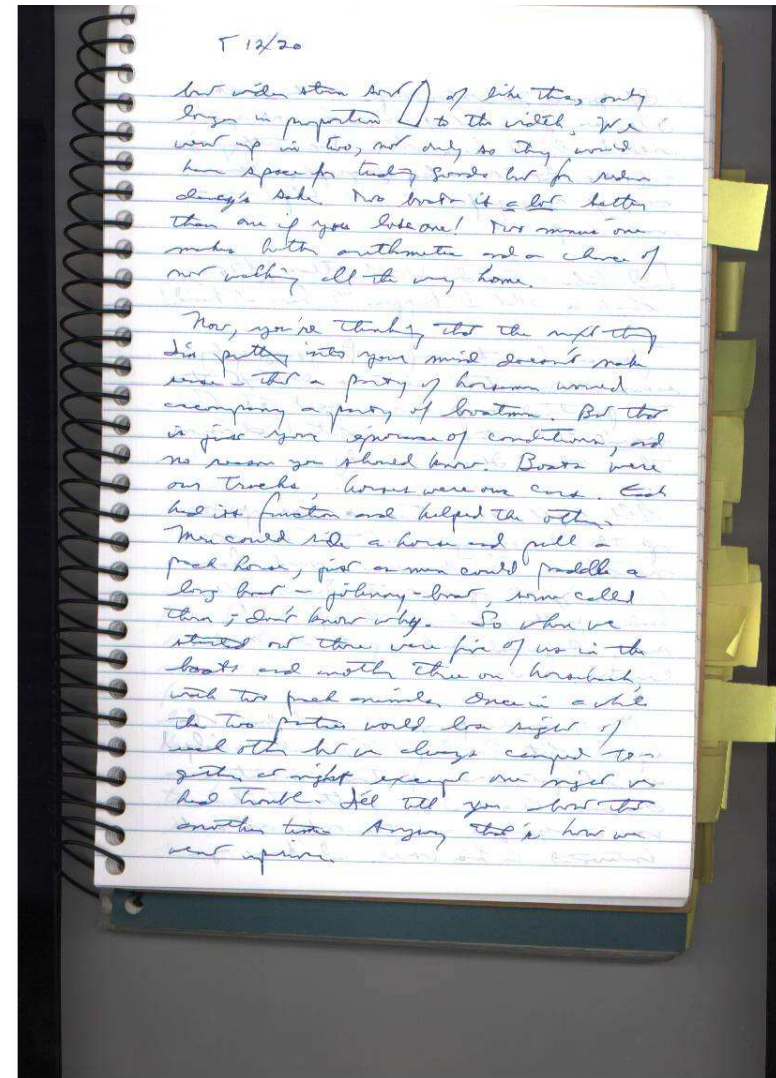 T 12/20
but wider stern sort of like this, only
longer in proportion to the width. We
went up in two, not only so they would
have space for trading goods but for redun
dancy's sake. Two boats is a lot better
than one if you lose one! Two minus one
makes better arithmetic and a chance of
not walking all the way home.
Now, you're thinking that the next thing
I'm putting into your mind doesn't make
sense - that a party of horsemen would
accompany a party of boatmen. But that
is just your ignorance of conditions, and
no reason you should know. Boats were
our trucks, horses were our cars. Each
had its function and helped the other.
Men could ride a horse and pull a
pack horse, just as men could paddle a
long boat - johnny-boat, some called
them; don't know why. So when we
started out there were five of us in the
boats and another three on horseback,
with two pack animals. Once in a while
the two parties would lose sight of
each other but we always camped to-
gether at night except one night we
had trouble. I'll tell you about that
another time. Anyway that's how we
went upriver.